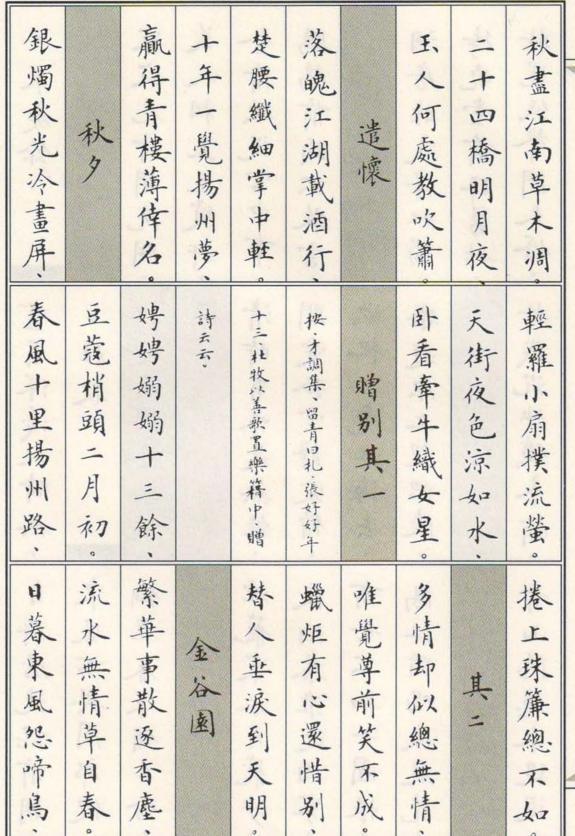 秋盡江南草木凋。
二十四橋明月夜、
玉人何處教吹簫。
遣懷
落魄江湖載酒行、
楚腰纖細掌中輕。
十年一覺揚州夢、
贏得青樓薄倖名。
秋夕
銀燭秋光冷畫屏、
輕羅小扇撲流螢。
天街夜色涼如水、
卧看牽牛織女星。
贈別其一
按、才調集、留青日札、張好好年
十三、杜牧以善歌置樂籍中、贈
詩云云。
娉娉嫋嫋十三餘、
豆蔻梢頭二月初。
春風十里揚州路、
捲上珠簾總不如。
其二
多情却似總無情、
唯覺尊前笑不成。
蠟炬有心還惜別、
替人垂淚到天明。
金谷園
繁華事散逐香塵、
流水無情草自春。
日暮東風怨啼鳥、